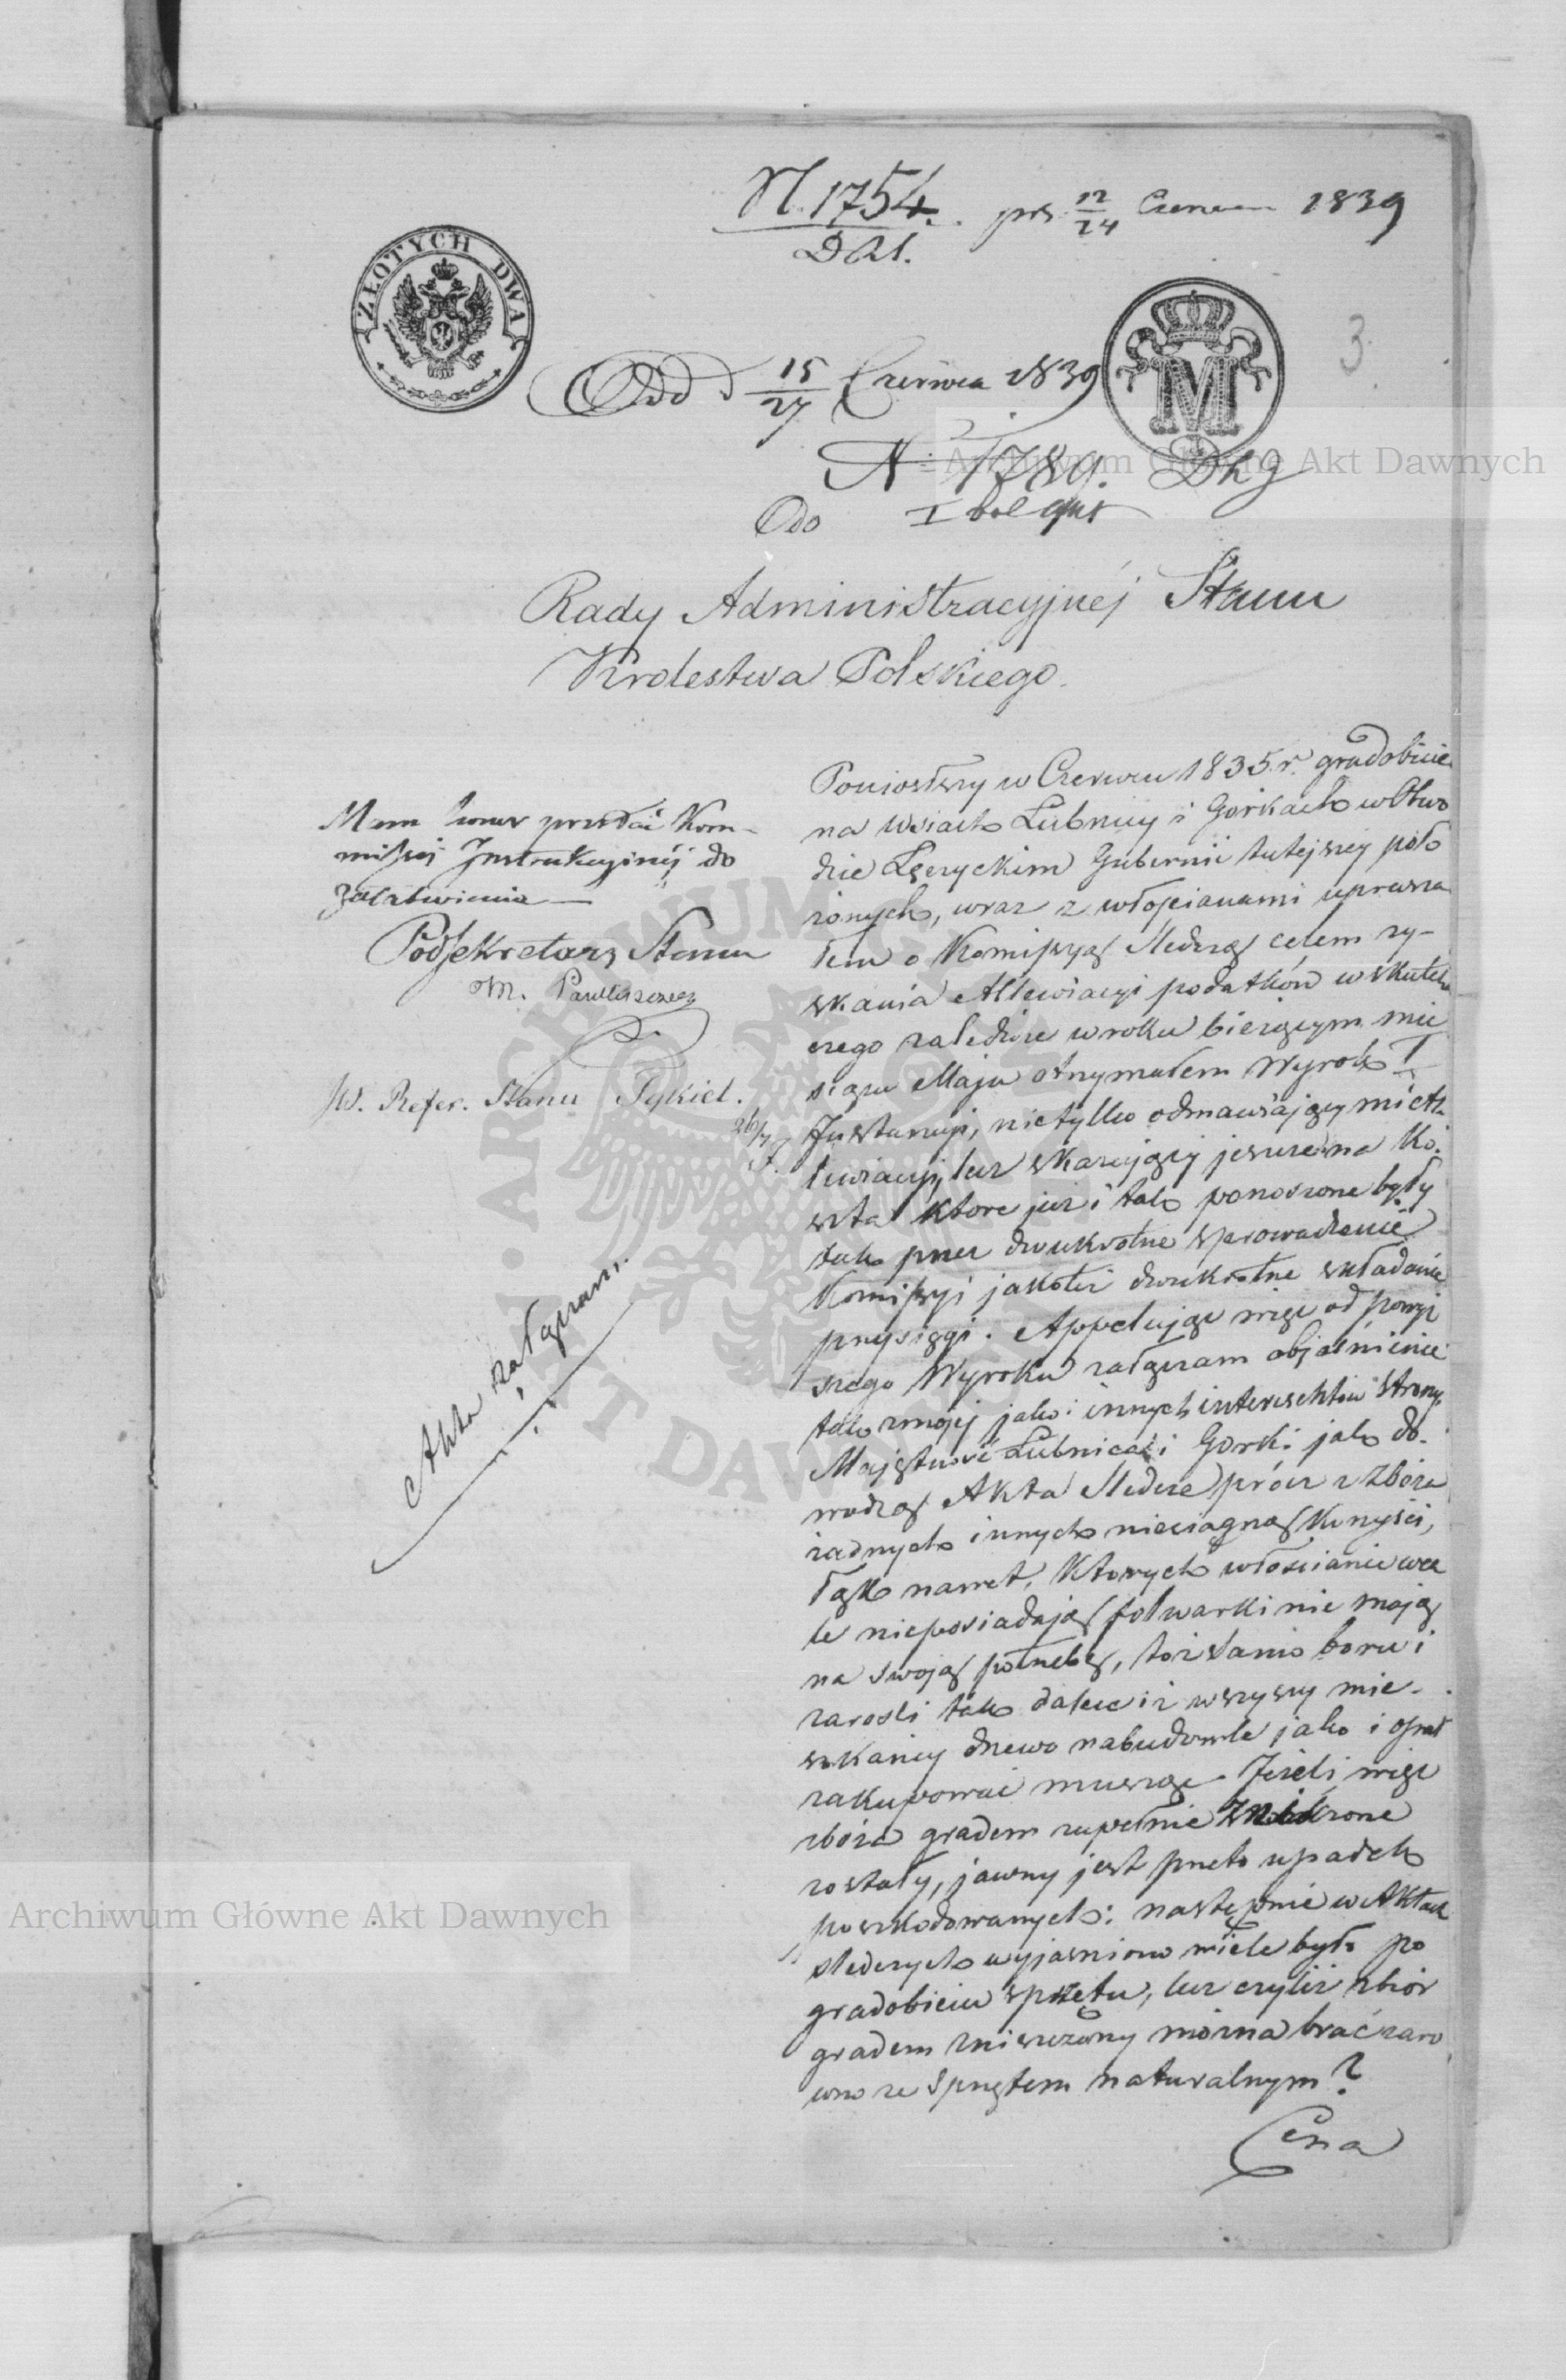 N. 1754. prs 12/24 Czerwca 1839
ZŁOTYCH DWA
Odd d 15/27 Czerwca 1839
M
3
N 1789.
Do
Rady Administracyjnéj Stanu
Krolestwa Polskiego.
Mam honor przesłać Kom-
missii Instrukcyjnéj do
załatwienia —
Podsekretarz Stanu
JW. Refer. Stanu
Akta załączam.
Poniosłszy w Czerwcu 1835 r. gradobicie
na wsiach Lubnicy i Gorkach w Obwo
dzie Łęczyckim Gubernii tutejszey poło
żonych, wraz z włościanami uprasza
łem o Komissyą śledczą celem zy-
skania Allewiacyi podatków w skutek
czego zaledwie w roku bieżącym mie
siącu Maju otrzymałem Wyrok I
Instancyi, nietylko odmawiający mi Al-
lewiacyi, lecz skazujący jeszcze na Ko-
szta które już i tak ponoszone były
tak przez dwukrotne sprowadzenie
Komissyi jakoteż dwukrotne składanie
przysięgi. Appellując więc od powyż
szego Wyroku załączam objaśnienie
tak z mojej jako i innych interesentów strony.
Majętność Lubnica i Gorki jak do-
wodzą Akta śledcze prócz z zboża
żadnych innych nieciągną korzyści,
Łąk nawet, których włościanie wca
le nieposiadają folwarki nie mają
na swoją potrzebę, toż samo boru i
zarośli tak dalece iż wszyscy mie-
szkańcy drzewo na budowle jako i opał
zakupować muszą. Jeżeli więc
zboża gradem zupełnie zniszczone
zostały, jawny jest przeto upadek
poszkodowanych: następnie w Aktach
śledczych wyjaśniono wiele było po
gradobiciu sprzętu, lecz czyliż zbiór
gradem zniszczony można brać zaro
wno ze sprzętem naturalnym?
Cena
Archiwum Główne Akt Dawnych
Archiwum Główne Akt Dawnych
ARCHIWUM GŁÓWNE AKT DAWNYCH